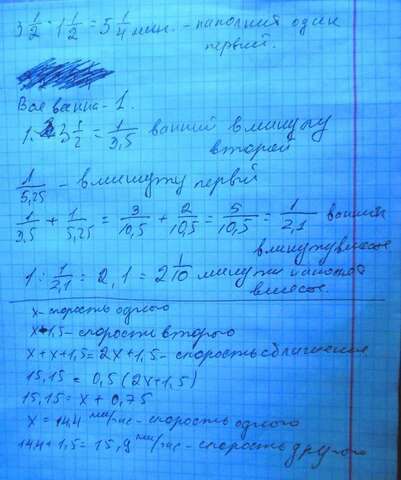 3 1/2 · 1 1/2 = 5 1/4 мин. - наполнит один
первый.
Вся ванна - 1.
1 : 3 1/2 = 1/3,5 ванны в минуту
второй
1/5,25 - в минуту первый
1/3,5 + 1/5,25 = 3/10,5 + 2/10,5 = 5/10,5 = 1/2,1 ванны
в минуту вместе
1 : 1/2,1 = 2,1 = 2 1/10 минуты
вместе.
х - скорость одного
х + 1,5 - скорость второго
х + х + 1,5 = 2х + 1,5 - скорость сближения
15,15 = 0,5 (2х + 1,5)
15,15 = х + 0,75
х = 14,4 км/час - скорость одного
14,4 + 1,5 = 15,9 км/час - скорость другого